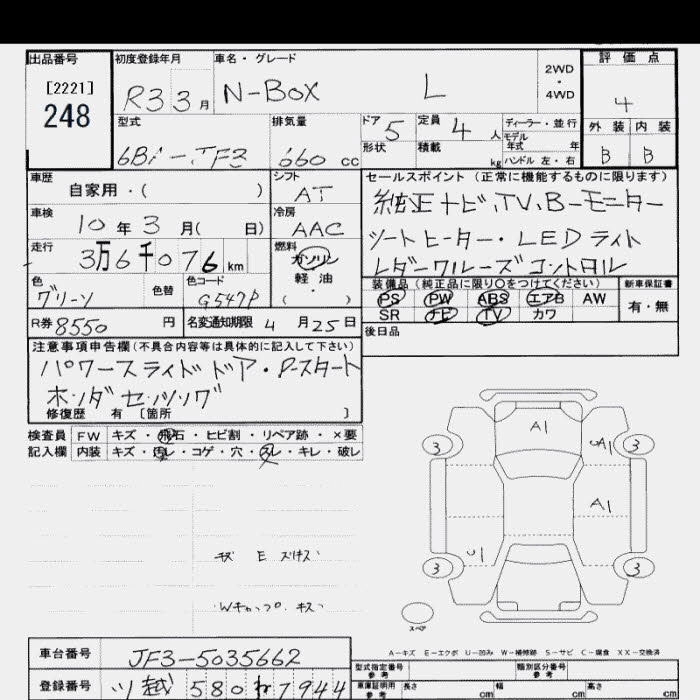 出品番号
[2221]
248
初度登録年月
R3 3月
車名・グレード
N-BOX L
2WD
・
4WD
評価点
4
型式
6BA-JF3
排気量
660 cc
ドア 5
定員 4 人
形状
積載 kg
ディーラー・並行
モデル
年式 年
ハンドル 左・右
外装 内装
B B
車歴
自家用・( )
シフト
AT
車検
10年3月( 日)
冷房
AAC
走行
3万6千076 km
燃料
ガソリン
軽油
( ・ )
色
グリーン
色替
色コード
G547P
R券 8550 円
名変通知期限 4月25日
セールスポイント (正常に機能するものに限ります)
純正ナビ、TV、Bーモニター
シートヒーター・LEDライト
レダークルーズコントロル
装備品 (純正品に限り○をつけてください)
新車保証書
PS PW ABS エアB AW
SR ナビ TV カワ
有・無
後日品
注意事項申告欄(不具合内容等は具体的に記入して下さい)
パワースライドドア・Pスタート
ホンダセンシング
修復歴 有 [箇所 ]
検査員 FW キズ・飛石・ヒビ割・リペア跡・×要
記入欄 内装 キズ・汚レ・コゲ・穴・スレ・キレ・破レ
A1
A1
A1
U1
3
3
3
3
スペア
キズ E スリキズ
Wキャップ キズ
A-キズ E-エクボ U-凹み W-補修跡 S-サビ C-腐食 XX-交換済
車台番号 JF3-5035662
登録番号 580 わ 7944
型式指定番号
参考
類別区分番号
参考
車庫証明用
参考
長さ cm
幅 cm
高さ cm